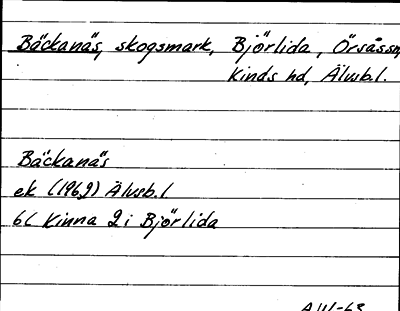 Bäckanäs, skogsmark, Björlida, Örsåssn
Kinds hd, Älvsb.l.
Bäckanäs
ek (1969) Älvsb.l
bl Kinna 2i Björlida